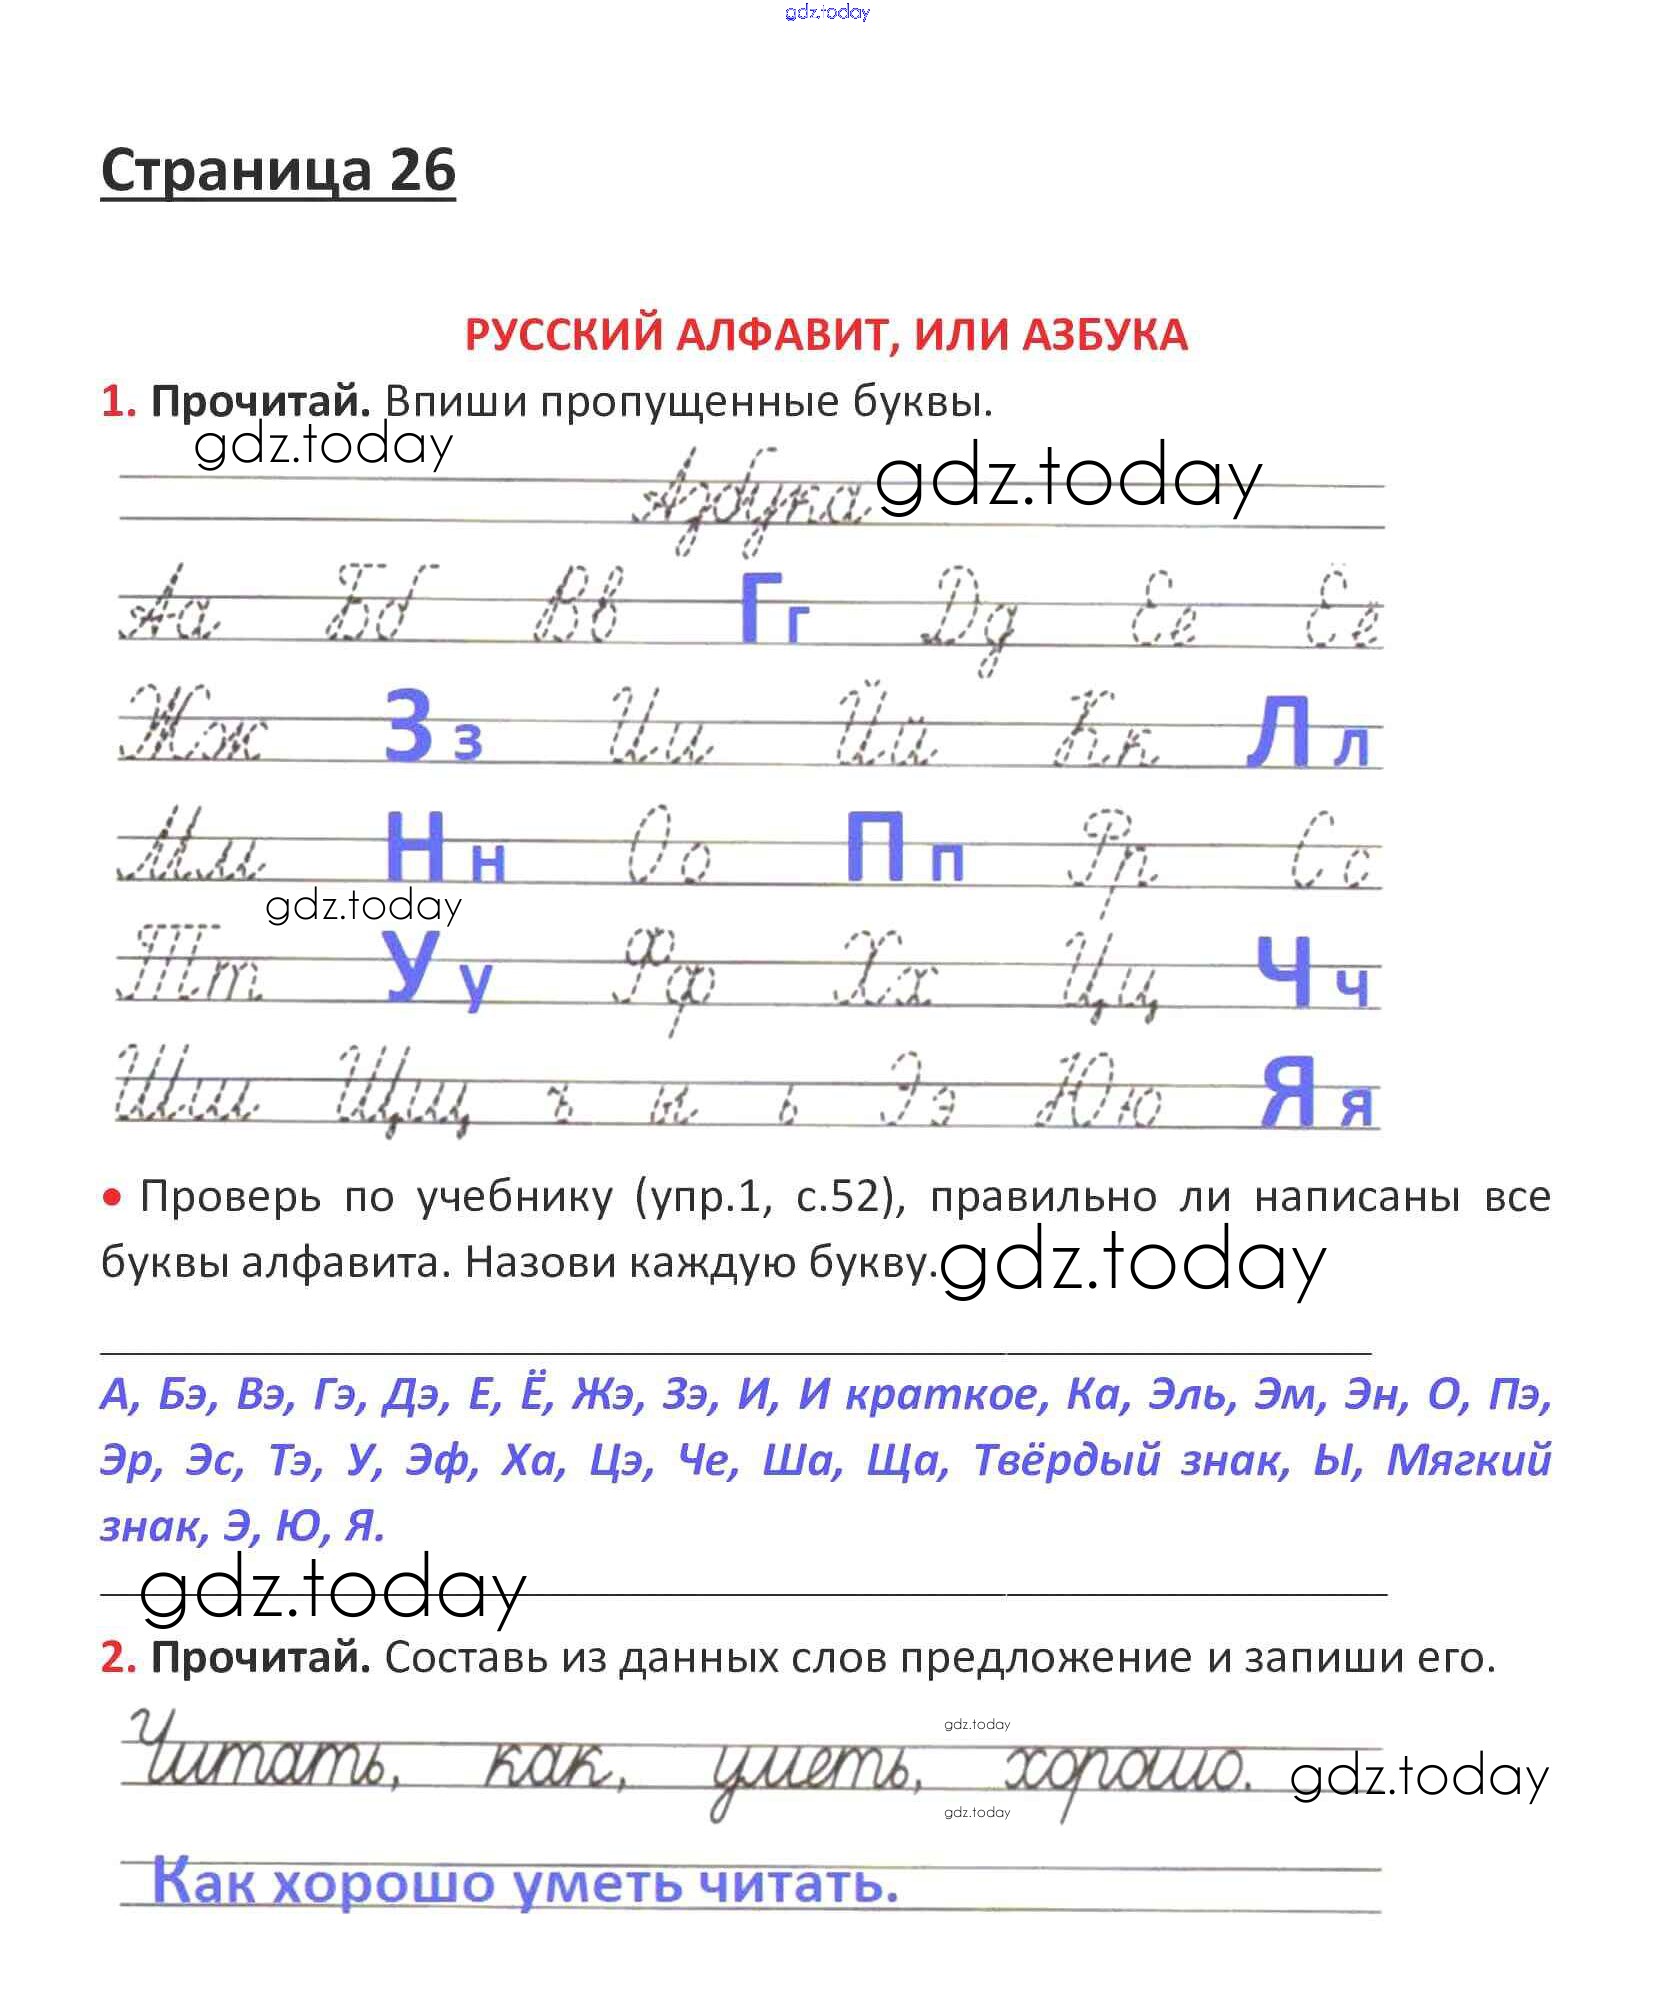 gdz.today
Страница 26
РУССКИЙ АЛФАВИТ, ИЛИ АЗБУКА
1. Прочитай. Впиши пропущенные буквы.
gdz.today
Азбука gdz.today
Аа Бб Вв Гг Дд Ее Ёё
Жж Зз Ии Йй Кк Лл
Мм Нн Оо Пп Рр Сс
gdz.today
Тт Уу Фф Хх Цц Чч
Шш Щщ ъ ы ь Ээ Юю Яя
• Проверь по учебнику (упр.1, с.52), правильно ли написаны все
буквы алфавита. Назови каждую букву. gdz.today
А, Бэ, Вэ, Гэ, Дэ, Е, Ё, Жэ, Зэ, И, И краткое, Ка, Эль, Эм, Эн, О, Пэ,
Эр, Эс, Тэ, У, Эф, Ха, Цэ, Че, Ша, Ща, Твёрдый знак, Ы, Мягкий
знак, Э, Ю, Я.
gdz.today
2. Прочитай. Составь из данных слов предложение и запиши его.
gdz.today
Читать, как, уметь, хорошо. gdz.today
gdz.today
Как хорошо уметь читать.